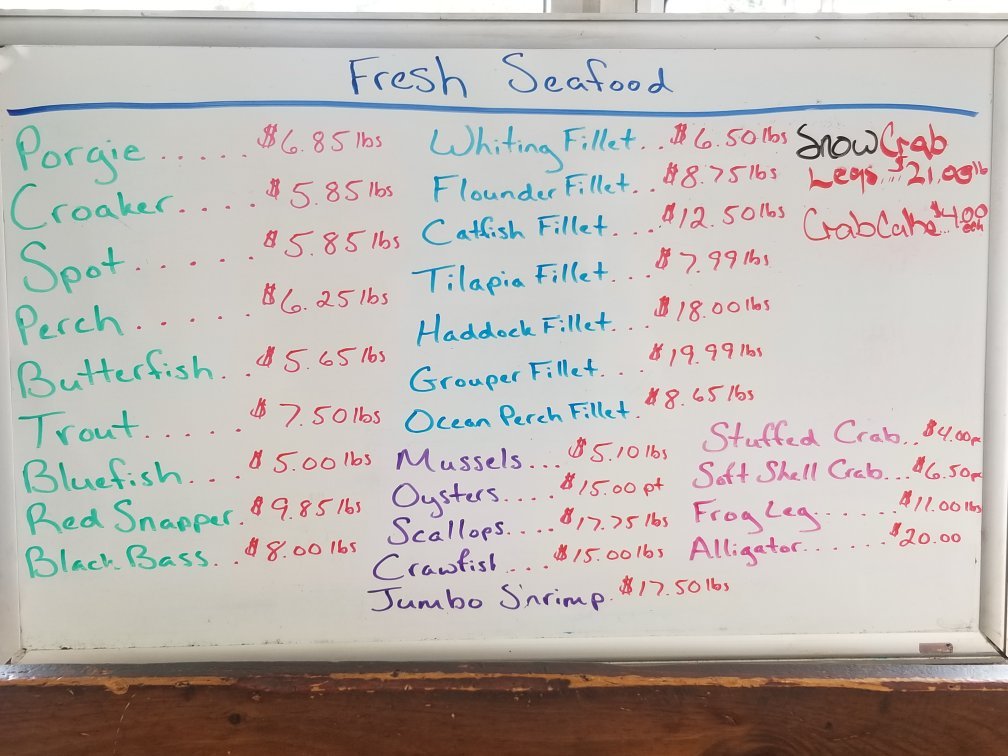 Fresh Seafood
Porgie ..... $6.85 lbs
Croaker.... $5.85 lbs
Spot...... $5.85 lbs
Perch..... $6.25 lbs
Butterfish... $5.65 lbs
Trout..... $7.50 lbs
Bluefish... $5.00 lbs
Red Snapper. $9.85 lbs
Black Bass... $8.00 lbs
Whiting Fillet.. $6.50 lbs
Flounder Fillet.. $8.75 lbs
Catfish Fillet... $12.50 lbs
Tilapia Fillet... $7.99 lbs
Haddock Fillet... $18.00 lbs
Grouper Fillet... $19.99 lbs
Ocean Perch Fillet. $8.65 lbs
Mussels... $5.10 lbs
Oysters.... $15.00 pt
Scallops.... $17.75 lbs
Crawfish.... $15.00 lbs
Jumbo Shrimp. $17.50 lbs
Snow Crab
Legs... $21.00 lb
Crab Cake... $4.00
each
Stuffed Crab.. $4.00
Soft Shell Crab... $6.50
Frog Leg...... $11.00 lbs
Alligator...... $20.00